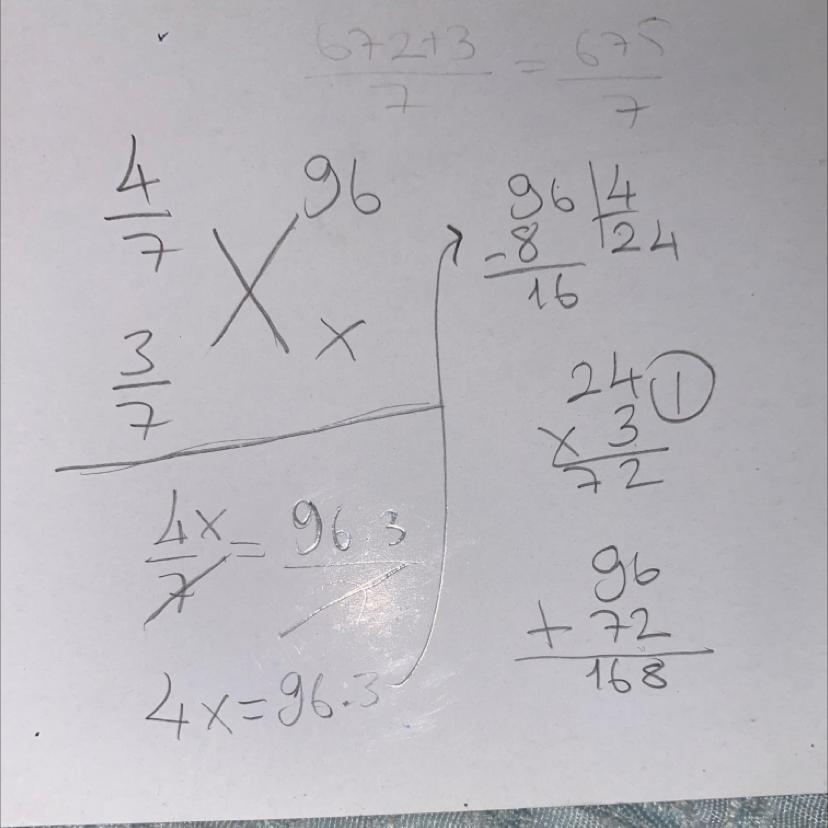 672+3 = 675
7 7
4 96
7
3 x
7
4x = 96.3
7
4x=96.3
96 4
-8 24
16
24 1
x 3
72
96
+ 72
168